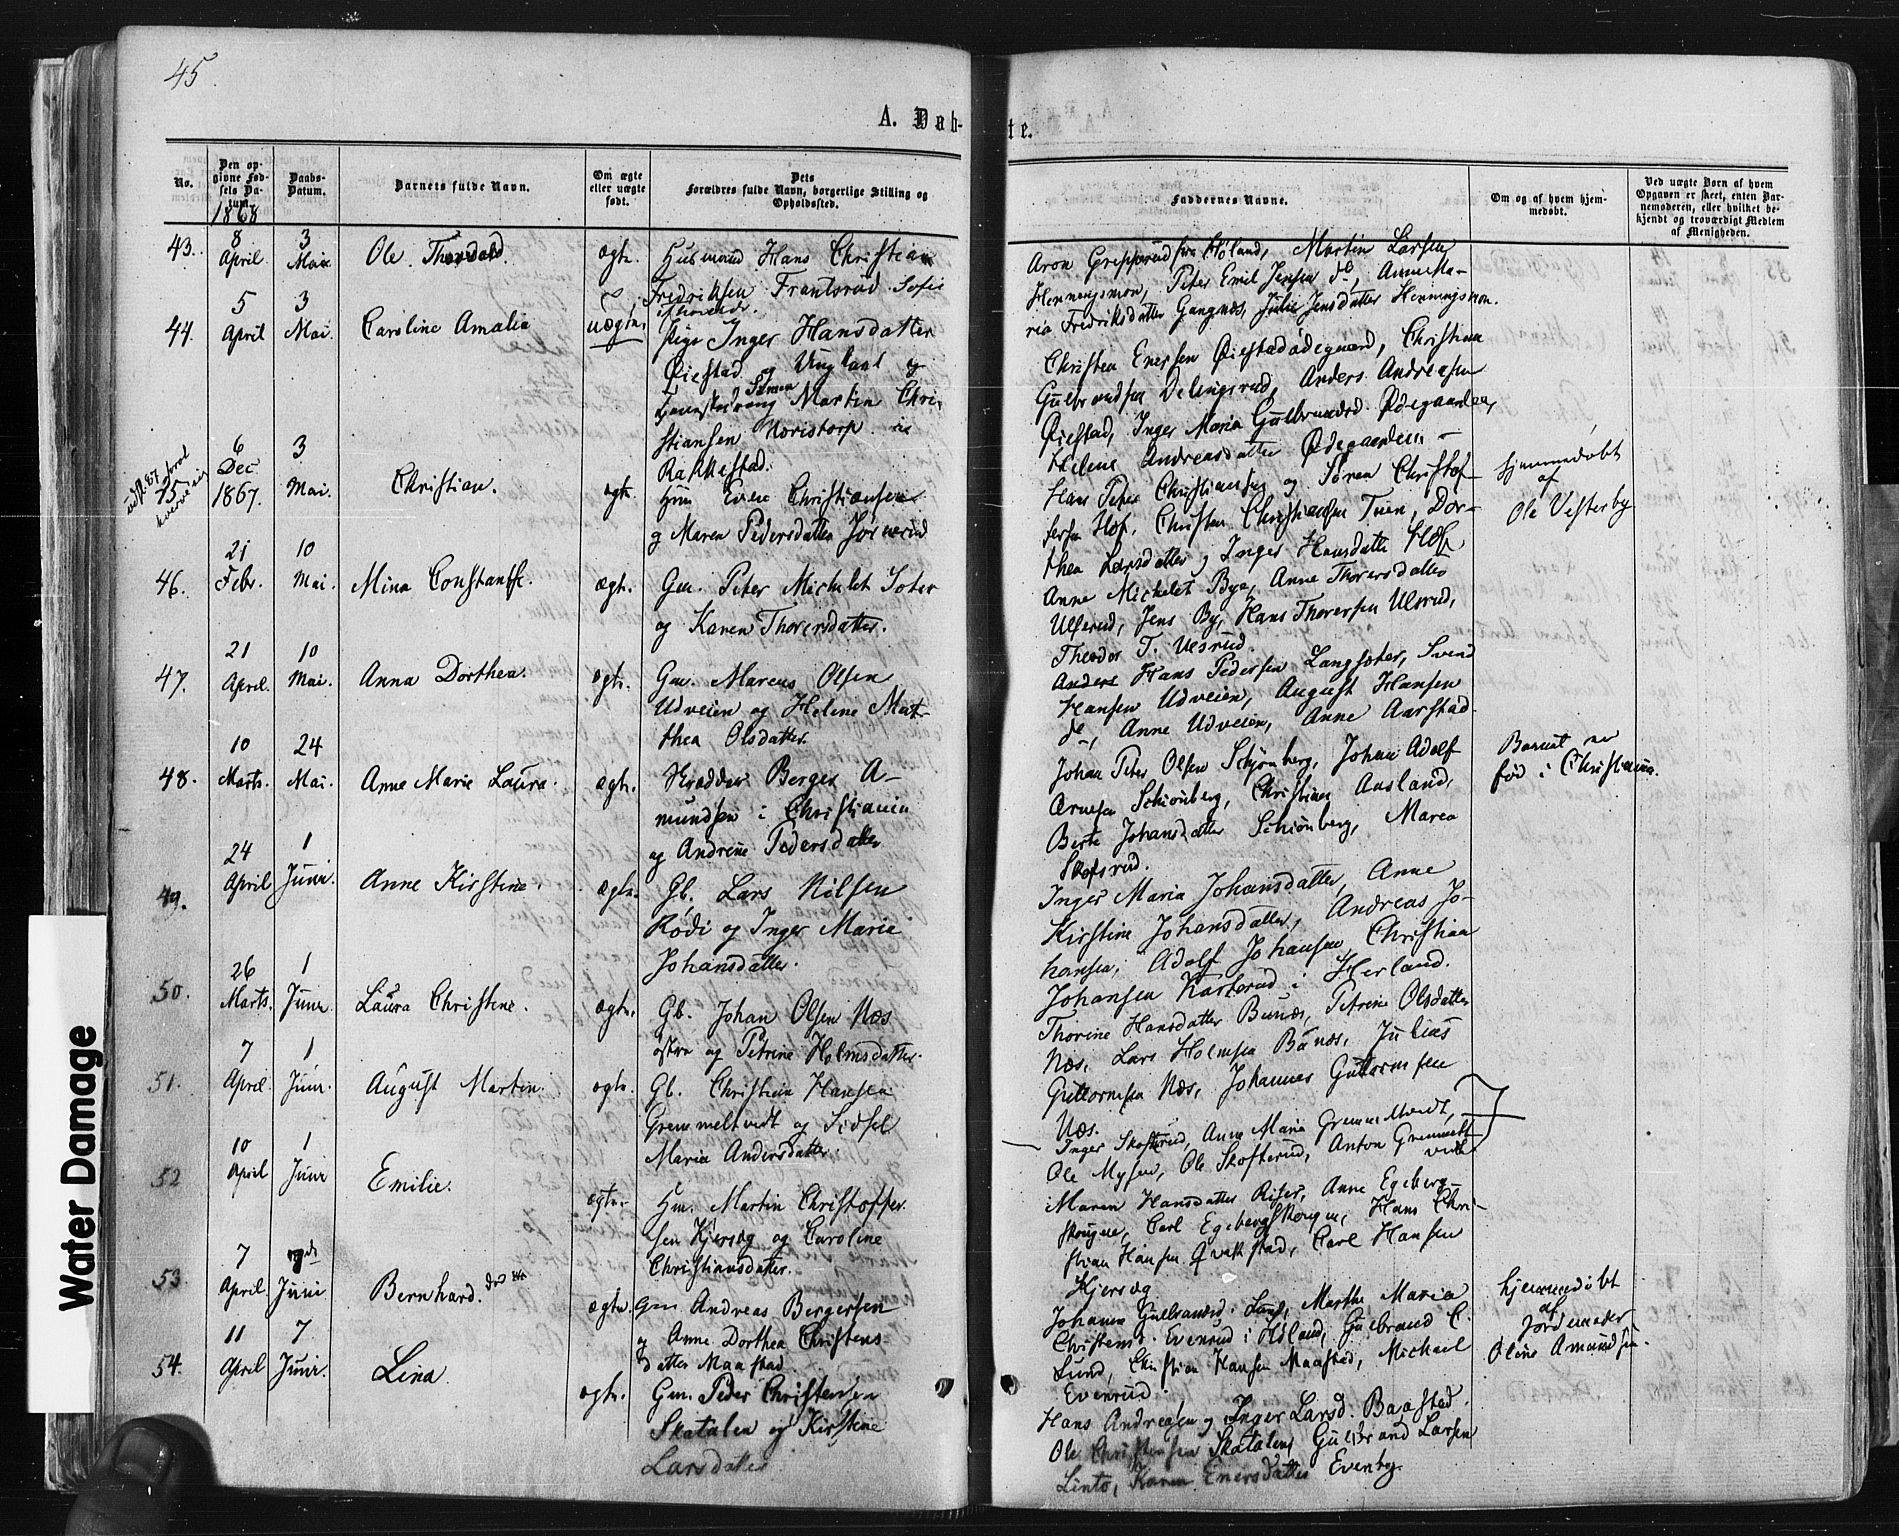 45
A. Døb-
te.
No.
Den op-
givne Fød-
sels Da-
tum.
1868
Daabs-
Datum.
Barnets fulde Navn.
Om ægte
eller uægte
født.
Dets
Forældres fulde Navn, borgerlige Stilling og
Opholdssted.
Faddernes Navne.
Om og af hvem hjem-
medøbt.
Ved uægte Børn af hvem
Opgaven er skeet, enten Bar-
nemoderen, eller hvilket be-
kjendt og troværdigt Medlem
af Menigheden.
43.
8 April.
3 Mai
Ole
ægte.
Husmand Hans Christian
Fredriksen Frantsrud Sofie
Aron Grepperud fra Høland, Martin Larsen
Henningsmon, Peter Emil Jensen do, Anne Ma-
ria Fredriksdatter Gangnæs, Julie Jensdatter Henningsmon.
44.
5 April
3 Mai.
Caroline Amalia
uægte.
Pige Inger Hansdatter
Øiestad og Ungkarl og
Simen Martin Chri
stiansen in
Rakkestad.
Christen Enersen Øiestadødegaard, Christian
Gulbrandsen Delingsrud, Anders Andreasen
Øiestad, Inger Maria Gulbrandsd. Ødegaarden,
Helene Andreasdatter Ødegaarden -
45
6 Dec 1867.
3 Mai.
Christian.
ægte.
Hm Even Christiansen
og Maren Pedersdatter
Hans Peter Christiansen og Søren Christof-
fersen Hof, Christen Christiansen Tuen, Dor-
thea Larsdatter og Inger Hansdatter Hof
hjemmedøbt
af
Ole Vesterby
46.
21 Febr.
10 Mai.
Mina Constanse.
ægte.
Gm. Peter Michelet Soter
og Karen Thorersdatter.
Anne Michelet Bye, Anne Thorersdatter
Ulsrud, Jens By, Hans Thorersen Ulsrud,
Theodor T. Ulsrud.
47.
21 April.
10 Mai.
Anna Dorthea.
ægte.
Gm. Marcus Olsen
Udveien og Helene Mat-
thea Olsdatter.
Anders Hans Pedersen Langsæter, Svend
Hansen Udveien, August Hansen
do, Anne Udveien, Anne Aarstad.
48.
10 Marts.
24 Mai.
Anne Marie Laura.
ægte.
Skrædder Berger A-
mundsen i Christiania
og Andrine Pedersdatter
Johan Peter Olsen Schjønberg, Johan Adolf
Arnesen Schiønberg, Christine Aasland,
Berte Johansdatter Schiønberg, Maren
Skofsrud.
Barnet er
fød i Christiania.
49.
24 April
1 Juni.
Anne Kirstine.
ægte.
Gb. Lars Nilsen
Rødi og Inger Marie
Johansdatter.
Inger Maria Johansdatter, Anne
Kirstine Johansdatter, Andreas Jo-
hansen, Adolf Johansen, Christian
Johansen Karterud i Herland.
50.
26 Marts.
1 Juni
Laura Christine.
ægte.
Gb. Johan Olsen Næs
østre og Petrine Holmsdatter.
Thorine Hansdatter Bunæs, Petrine Olsdatter
Næs, Lars Holmsen Bunæs, Julius
Guttormsen Næs, Johannes Guttormsen
Næs.
51.
7 April.
1 Juni.
August Martin.
ægte.
Gb. Christian Hansen
Gremmeltvedt og Sidsel
Maria Andersdatter.
Inger Skofterud, Anne Maria Gremmeltvedt,
Ole Mysen, Ole Skofterud, Anton Gremmelt-
vedt
52
10 April
1 Juni
Emilie.
ægte.
Hm. Martin Christoffer-
sen Kjersøg og Caroline
Christiansdatter.
Maren Hansdatter Riser, Anne Egeberg-
skougen, Carl Egebergskougen, Hans Chri-
stian Hansen Qvakstad, Carl Hansen
Kjersøg
53.
7 April.
Juni
Bernhard.
ægte.
Gm Andreas Bergersen
og Anne Dorthea Christens-
datter Maastad.
Johanne Gulbrandsd. Lund, Marthe Maria
Christensd. Evenrud i Høland, Gulbrand C.
Lund, Christian Hansen Maastad, Michael
Evenrud.
hjemmedøbt
af
Jordmoder
Oline Amundsen.
54.
11 April
7 Juni.
Lina
ægte.
Gm. Peder Christensen
Skatalen og Kirstine
Larsdatter
Hans Andreasen og Inger Larsd. Baastad.
Ole Christensen Skatalen, Gulbrand Larsen
Linto, Karen Enersdatter Evenby
Water Damage